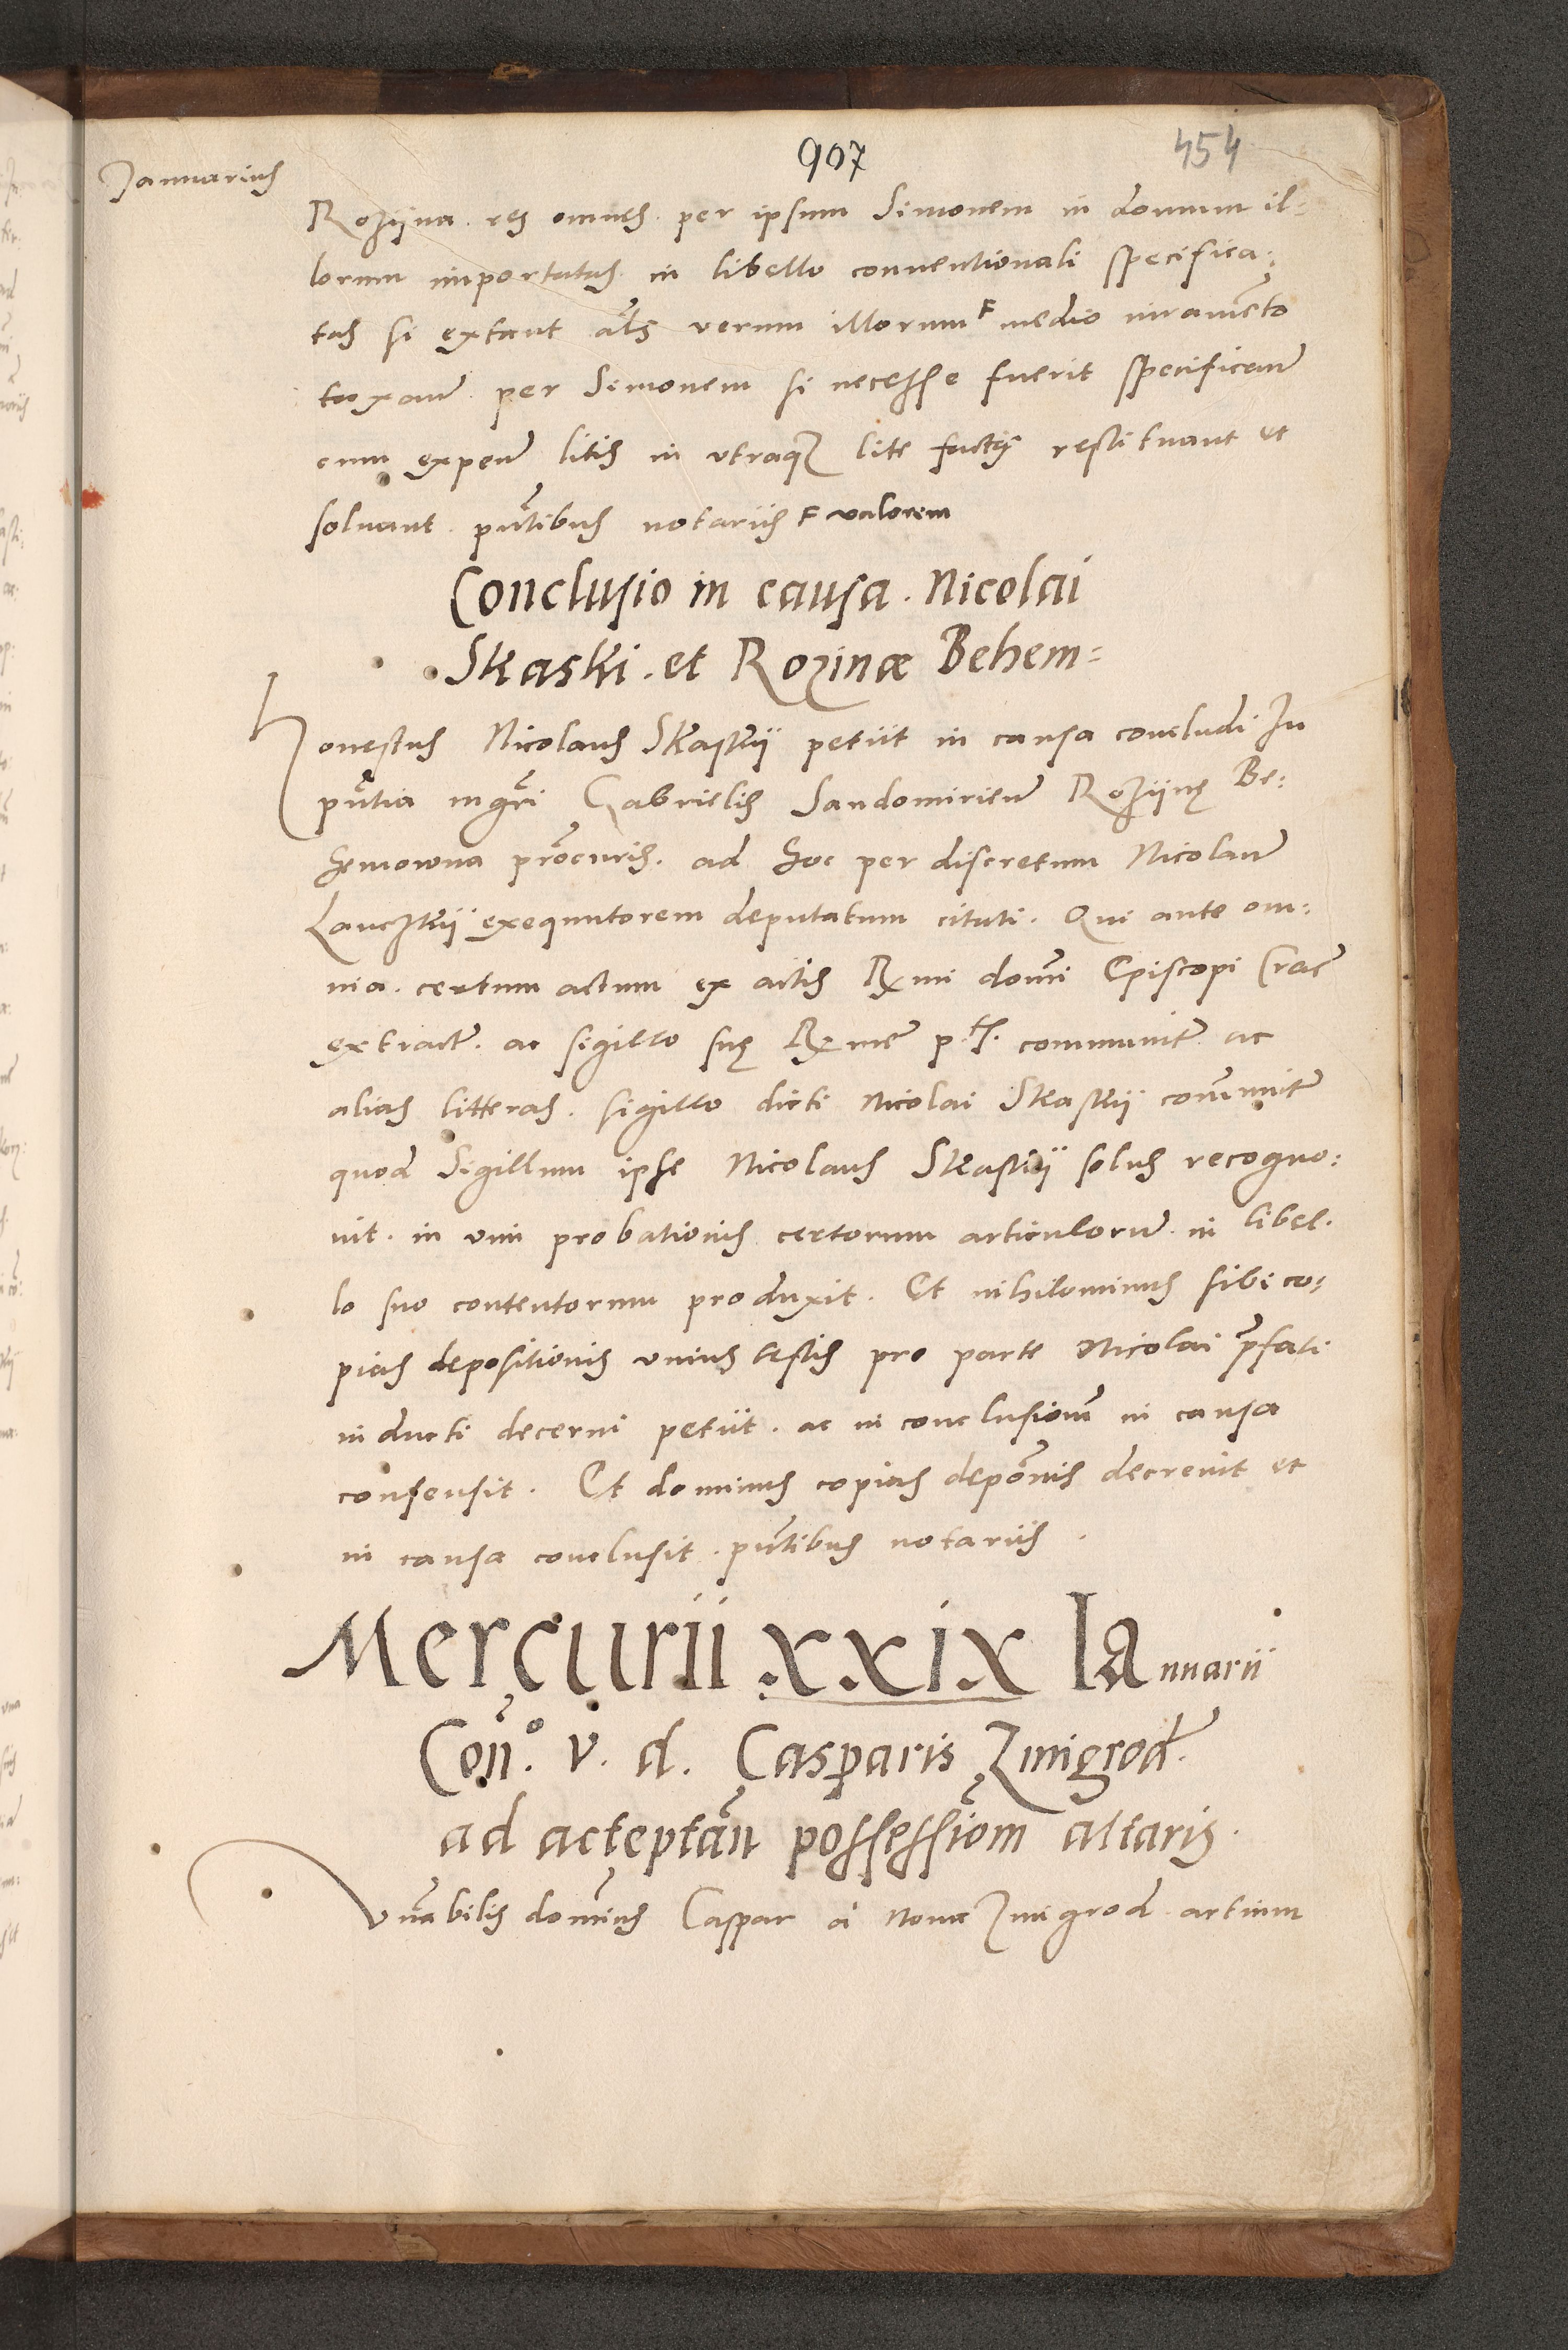 907
454
Januarius
Rozijna. res omnes. per ipsum Simonem in domum il=
lorum importatas. in libello conuentionali specifica:
tas si extant als verum illorum F medio iuramēto
taxan̄ per Simonem si necesse fuerit specifican̄
cum expen̄ litis in vtraqʒ lite factis restituant et
soluant. pn̄tibus notariis F valorem
Conclusio in causa. Nicolai
Skaski. et Rozinæ Behem=
Honestus Nicolaus Skaskij petiit in causa concludi In
pn̄tia mgr̄i Gabrielis Sandomirien̄ Rozijnę Be:
hemowna procuris. ad hoc per discretum Nicolaū
Lanczkij exequutorem deputatum citati. Qui ante om:
nia. certum actum ex actis Rx̄mi domī Episcopi Crac̄
extract̄. ac sigillo suę Rx̄me p. t. communit̄ ac
alias litteras. sigillo dicti Nicolai Skaskij com̄unit̄
quod Sigillum ipse Nicolaus Skaskij solus recogno:
uit. in vim probationis certorum articulorū in libel.
lo suo contentorum produxit. Et nihilominus sibi co:
pias depositionis vnius testis pro parte Nicolai p̄fati
inducti decerni petiit. ac in conclusionē in causa
consensit. Et dominus copias depōnis decreuit et
in causa conclusit. pn̄tibus notariis.
Mercurii xxix Ianuarii
Con̄o. v. d. Casparis Zmigrod.
ad acceptān possessiōm altaris.
Vn̄abilis domīnus Caspar a Noua Zmigrod artium